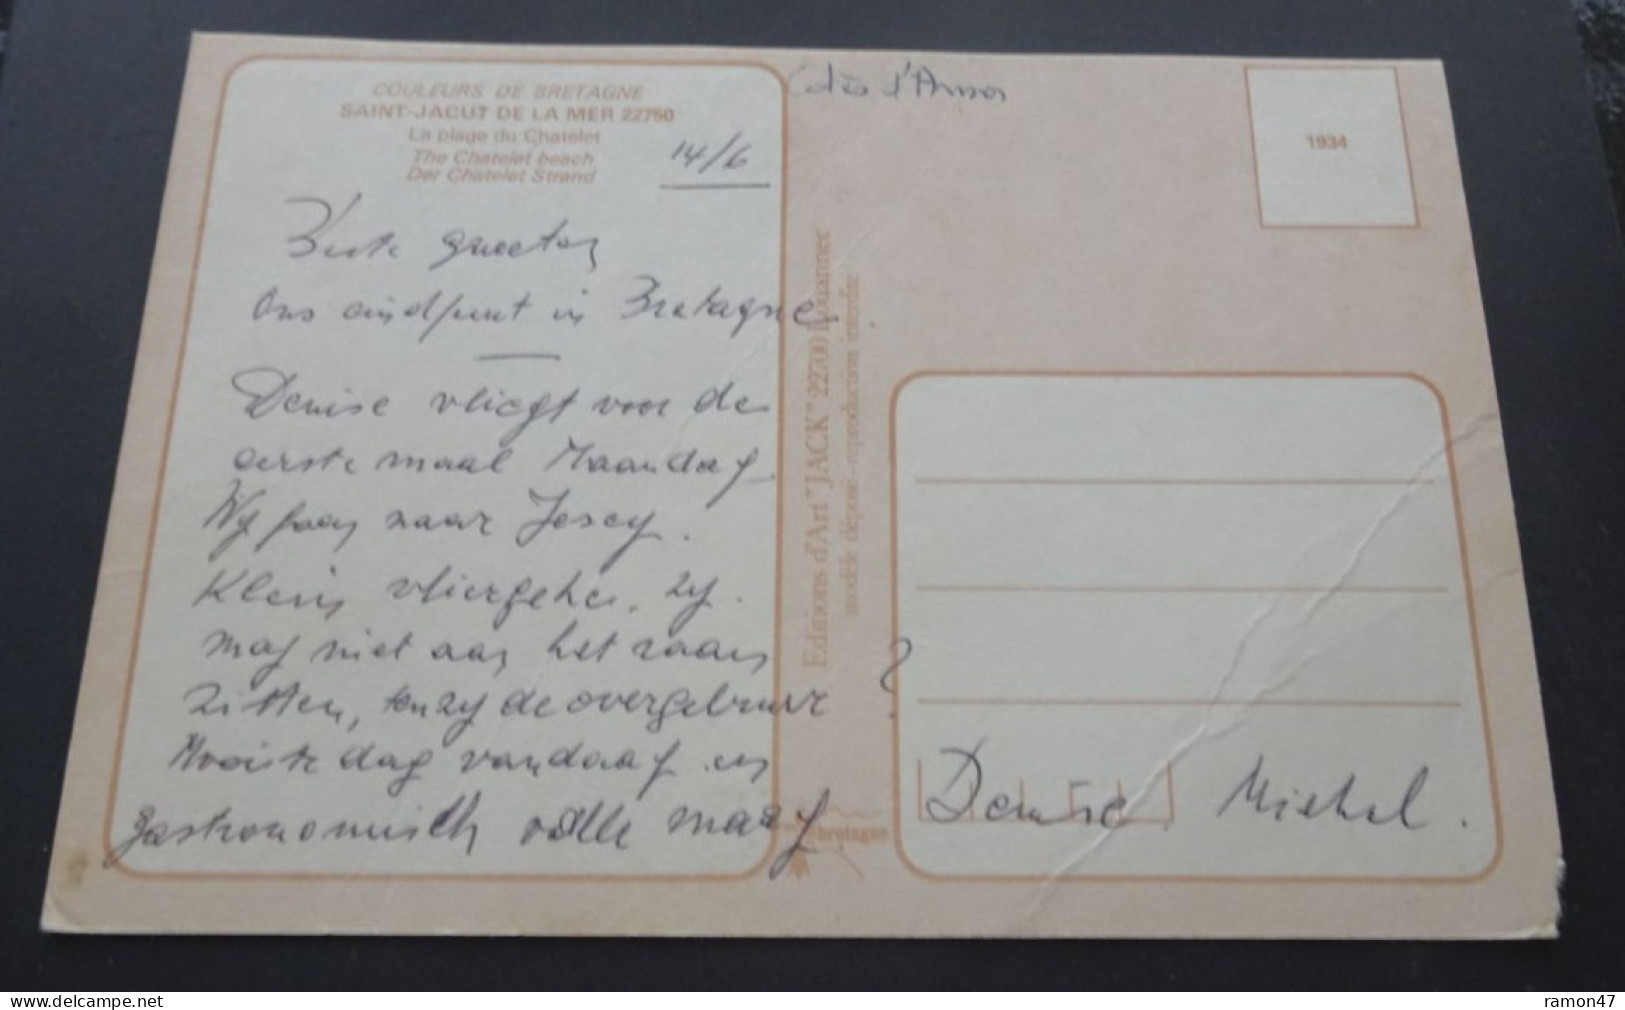 COULEURS DE BRETAGNE
SAINT-JACUT DE LA MER 22750
La plage du Chatelet
The Chatelet beach
Der Chatelet Strand
14/6
Beste groeten
Ons eindpunt in Bretagne.
Denise vliegt voor de
eerste maal Maandag.
Wij gaan naar Jersey.
Klein vliegertje, zij
mag niet aan het raam
zitten, de overgebuur
Mooiste dag vandaag en
gastronomisch volle maag
Côtes d'Armor
1934
Editions d'Art "JACK" 22700 Louannec
modèle déposé - reproduction interdite
bretagne
?
Denise. Michel.
ramon47